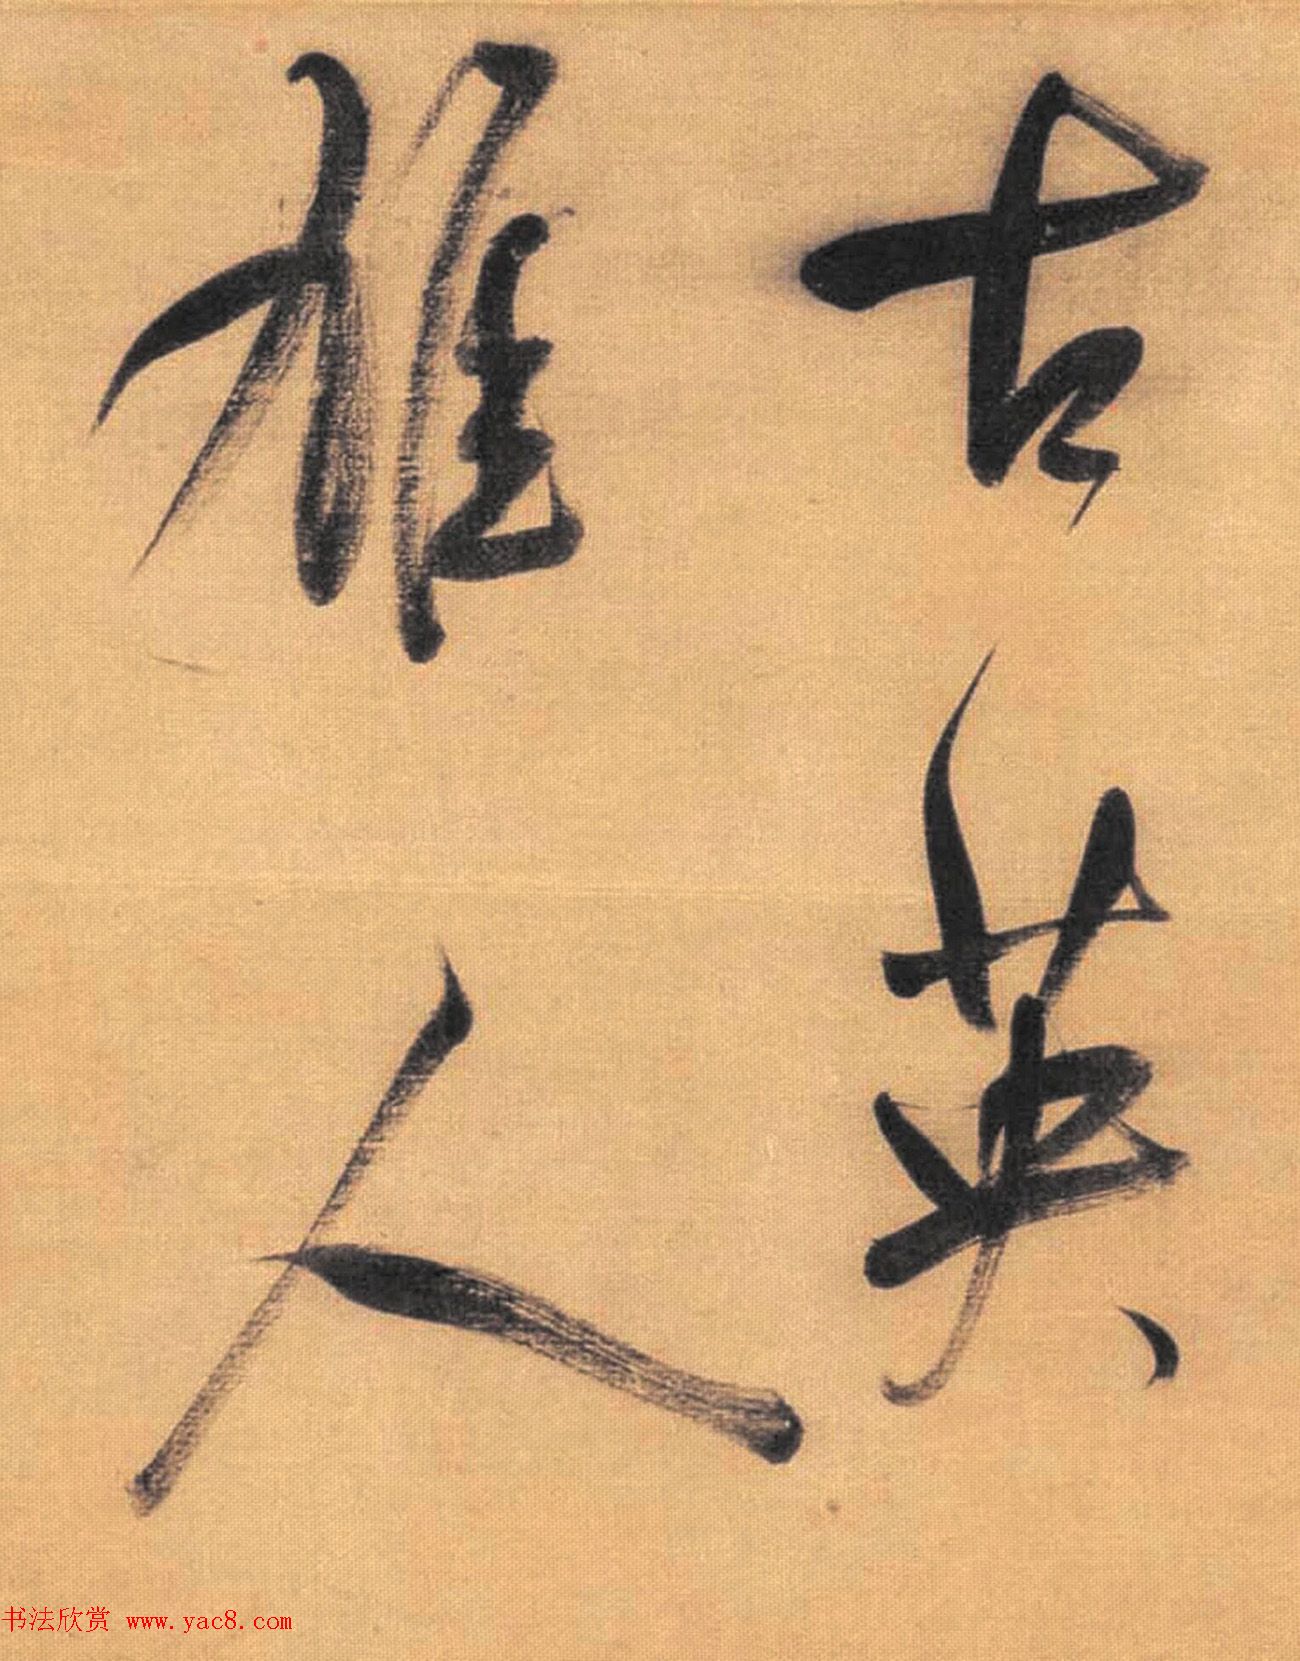 古英
雄人
书法欣赏 www.yac8.com